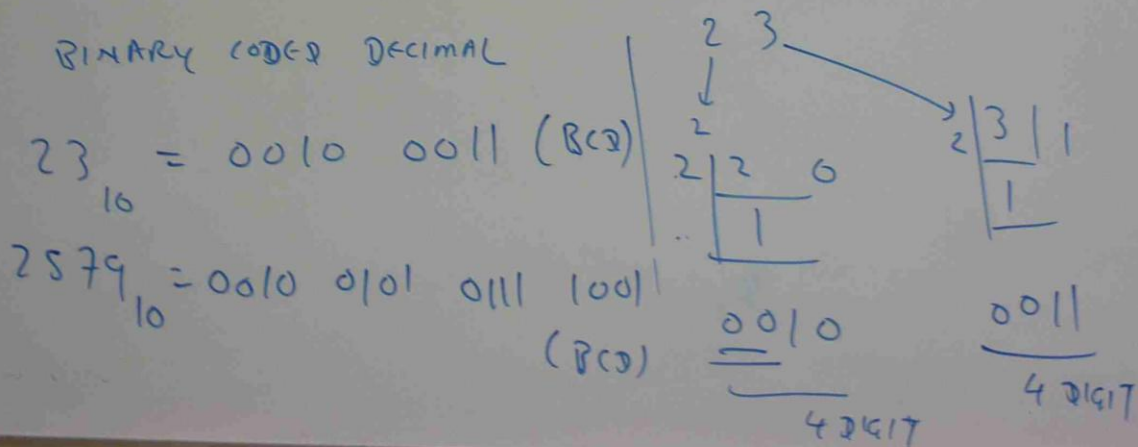 BINARY CODED DECIMAL
23₁₀ = 0010 0011 (BCD)
2579₁₀ = 0010 0101 0111 1001
(BCD)
2 3
2
2 2 0
1
0010
4 DIGIT
2 3 1
1
0011
4 DIGIT